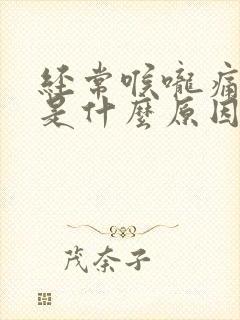 经常喉嚨痛
是什麼原因
茂奈子